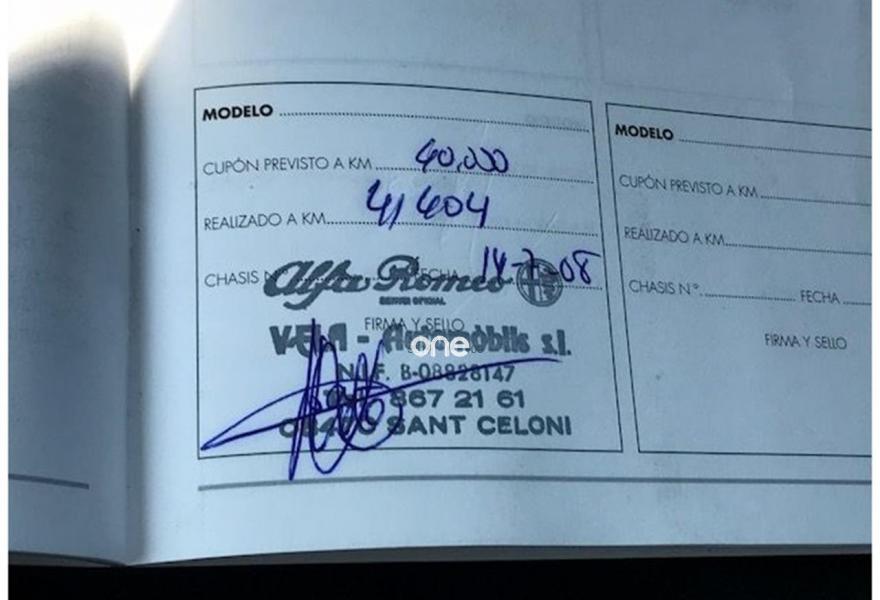 MODELO
CUPÓN PREVISTO A KM 40,000
REALIZADO A KM 41404
CHASIS N FECHA 14-7-08
Alfa Romeo
SERVEI OFICIAL
FIRMA Y SELLO
VELA - Automòbils s.l.
one
N.I.F. B-08828147
867 21 61
08470 SANT CELONI
MODELO
CUPÓN PREVISTO A KM
REALIZADO A KM
CHASIS N° FECHA
FIRMA Y SELLO